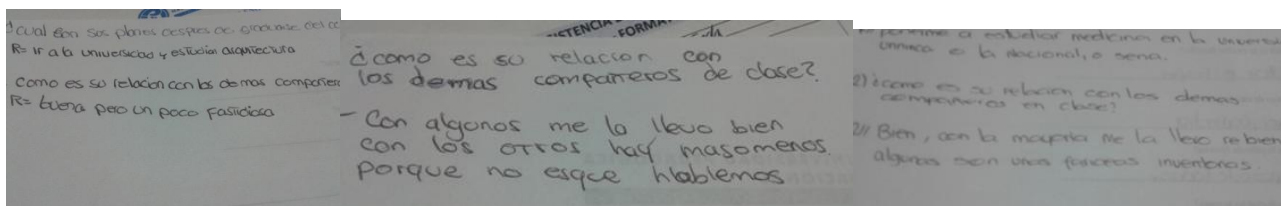 cual son sus planes despues de graduarse del co
R= ir a la universidad y estudiar arquitectura
Como es su relacion con los demas compañer
R= buena pero un poco fastidiosa
STENCIA
FORMA
¿como es su relacion con
los demas compañeros de clase?
- Con algunos me la llevo bien
con los otros hay masomenos.
porque no esque hablemos
a estudiar medicina en la univers
o la nacional, o sena.
2) ¿como es su relacion con los demas
compañeros en clase?
2// Bien, con la mayoria me la llevo re bien
algunas son unas inventoras.